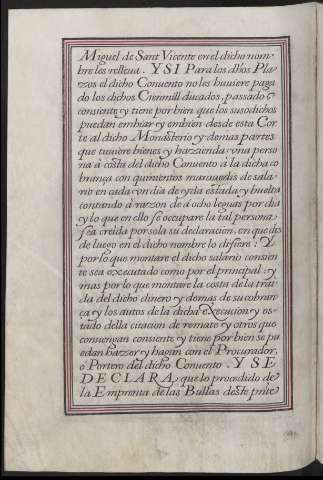 Miguel de Sant Vicente en el dicho nom-
bre les relleua. Y SI Para los dhos Pla-
zos el dicho Conuento no les huuiere paga
do los dichos Cienmill ducados, passado
consiente y tiene por bien que los susodichos
puedan embiar y embien desde esta Cor
te al dicho Monasterio y demas partes
que tuuiere bienes y hazzienda vna perso
na à costa del dicho Conuento à la dicha co
brança con quinientos marauedis de sala-
rio en cada vn dia de yda estada y buelta
contando à razon de à ocho leguas por dia
y lo que en ello se ocupare la tal persona
sea creida por sola su declaracion, en que des
de luego en el dicho nombre lo difiere: Y
por lo que montare el dicho salario consien
te sea executado como por el principal y
mas por lo que montare la costa de la tray
da del dicho dinero y demas de su cobran
ça y los autos de la dicha execucion y es-
tado della citacion de remate y otros que
conuengan consiente y tiene por bien se pu
edan hazzer y hagan con el Procurador,
ò Portero del dicho Conuento. Y SE
DECLARA, que lo procedido de
la Emprenta de las Bullas deste pnte